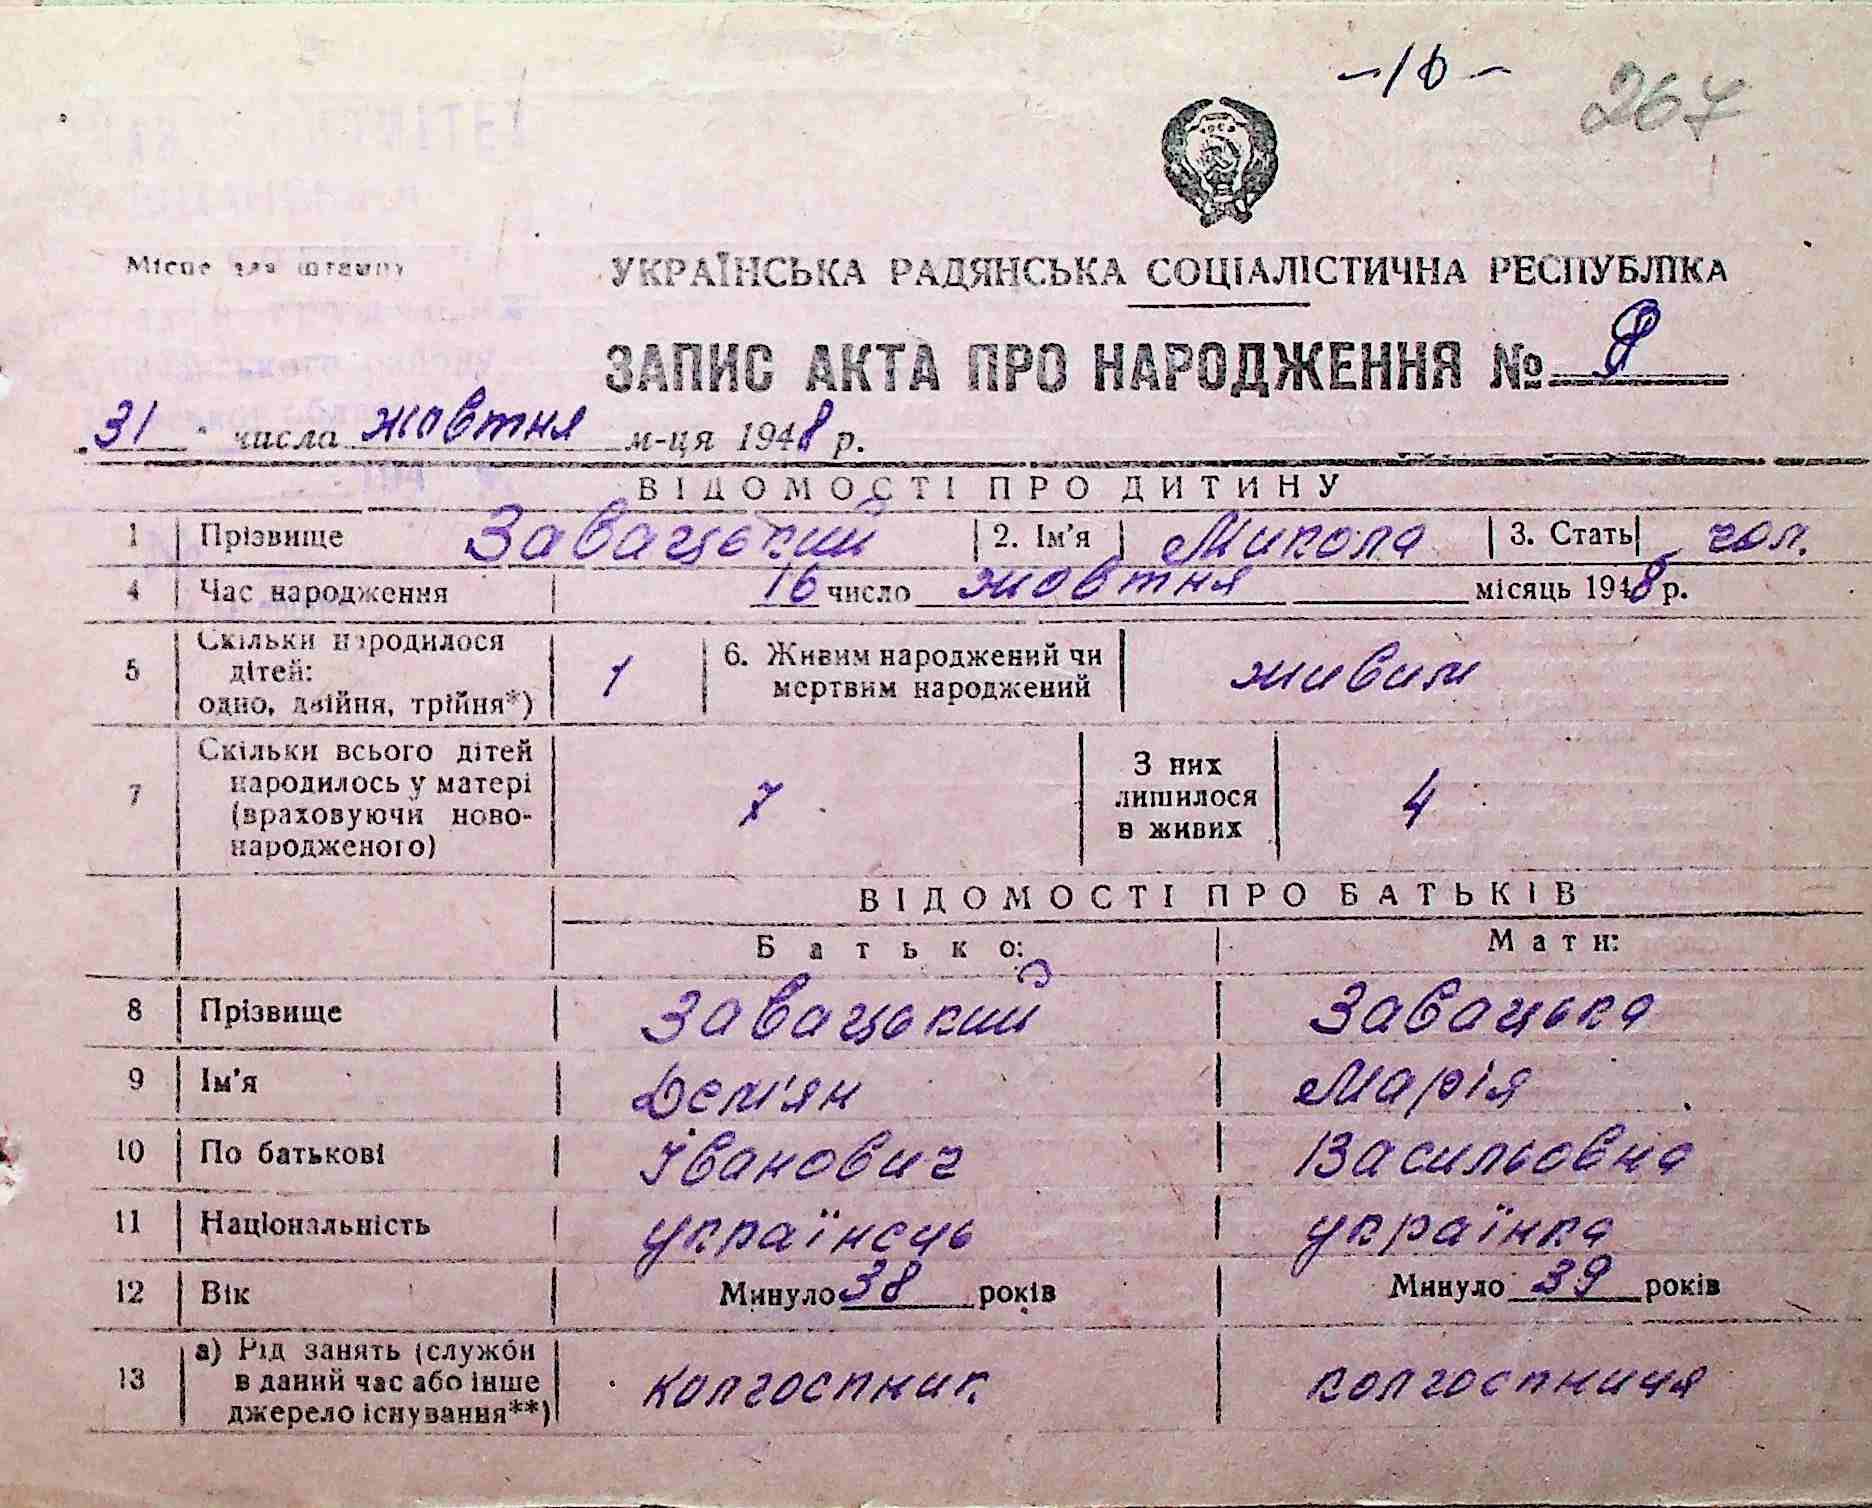 -10-
267
Місце для штампу
УКРАЇНСЬКА РАДЯНСЬКА СОЦІАЛІСТИЧНА РЕСПУБЛІКА
ЗАПИС АКТА ПРО НАРОДЖЕННЯ № 8
31 числа жовтня м-ця 1948 р.
ВІДОМОСТІ ПРО ДИТИНУ
1 Прізвище Завацький 2. Ім'я Микола 3. Стать чол.
4 Час народження 16 число жовтня місяць 1948 р.
5 Скільки народилося дітей: одно, двійня, трійня*) 1 6. Живим народжений чи мертвим народжений живим
7 Скільки всього дітей народилось у матері (враховуючи ново-народженого) 7 З них лишилося в живих 4
ВІДОМОСТІ ПРО БАТЬКІВ
Батько: Мати:
8 Прізвище Завацький Завацька
9 Ім'я Дем'ян Марія
10 По батькові Іванович Васильовна
11 Національність українець українка
12 Вік Минуло 38 років Минуло 39 років
13 а) Рід занять (служби в даний час або інше джерело існування**) колгоспник колгоспниця